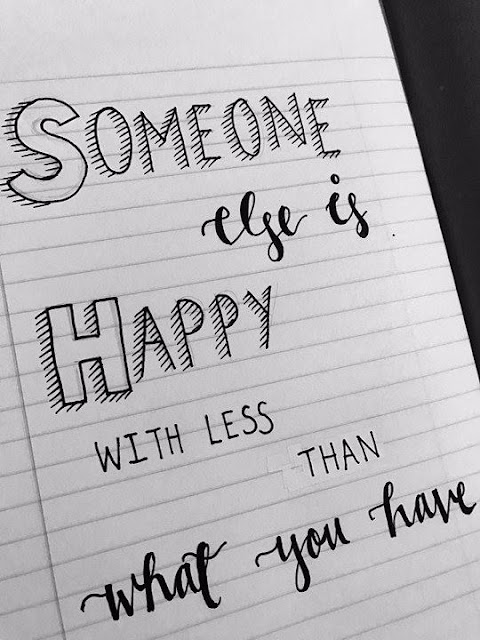 SOMEONE
else is
HAPPY
WITH LESS
THAN
what you have